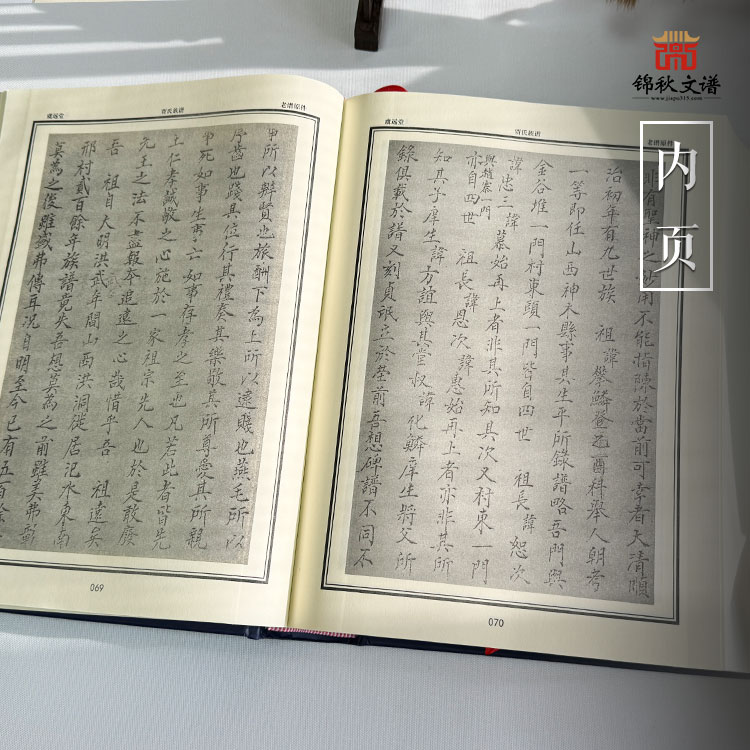 锦秋文谱
www.jiapu315.com
内页
氏族谱
老谱原件
事所以辯賢也旅酬下為上所以逮賤也燕毛所以
序齒也踐其位行其禮奏其樂敬其所尊愛其所親
事死如事生事亡如事存孝之至也凡若此者皆先
王仁孝誠敬之心施於一家祖宗先人也於是敢廢
先王之法不盡報本追遠之心哉惜乎吾 祖遠矣
吾 祖自大明洪武年間山西洪洞徙居汜水東南
邢村貳百餘年族譜竟失吾想莫為之前雖美弗彰
莫為之後雖盛弗傳耳况自明至今已有五百餘
069
氏族谱
老谱原件
非有聖神之功用不能指陳於當前可幸者大清順
治初年有九世族 祖諱攀鱗登酉科舉人朝考
一等即任山西神木縣事其生平所錄譜略吾門與
金谷堆一門村東頭一門皆自四世 祖長諱恕次
諱忠三諱慕始再上者非其所知其次又村東一門
與趙寨一門
亦自四世 祖長諱恩次諱惠始再上者亦非其所
知其子庠生諱方誼與其堂叔諱化鱗庠生將父所
錄俱載於譜又刻貞珉立於塋前吾想碑譜不同不
070